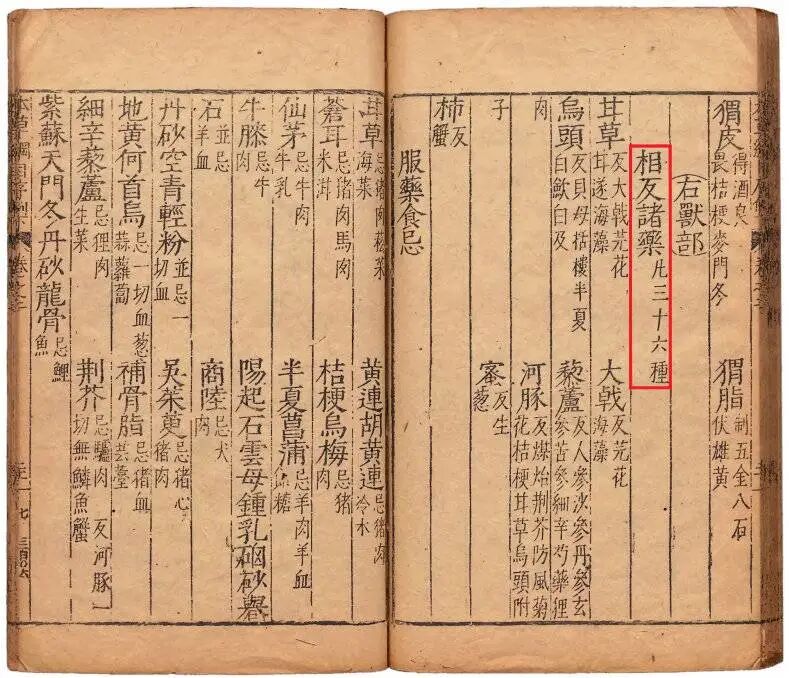 猬皮得酒良畏桔梗麥門冬 猬脂制五金八石伏雄黃
右獸部
相反諸藥凡三十六種
甘草反大戟芫花甘遂海藻 大戟反芫花海藻
烏頭反貝母栝樓半夏白斂白及 藜蘆反人參沙參丹參玄參苦參細辛芍藥狸
肉 河豚反煤炲荊芥防風菊花桔梗甘草烏頭附
子 蜜反生葱
柿反蟹
服藥食忌
甘草忌猪肉菘菜海菜 黃連胡黃連忌猪肉冷水
蒼耳忌猪肉馬肉米泔 桔梗烏梅忌猪肉
仙茅忌牛肉牛乳 半夏菖蒲忌羊肉羊血飴糖
牛膝忌牛肉 陽起石雲母鍾乳硇砂礜
石並忌羊血 商陸忌犬肉
丹砂空青輕粉並忌一切血 吳茱萸忌猪心猪肉
地黃何首烏忌一切血葱蒜蘿蔔 補骨脂忌猪血芸薹
細辛藜蘆忌狸肉生菜 荊芥忌驢肉反河豚一切無鱗魚蟹
紫蘇天門冬丹砂龍骨忌鯉魚
本草綱目序例 卷之二